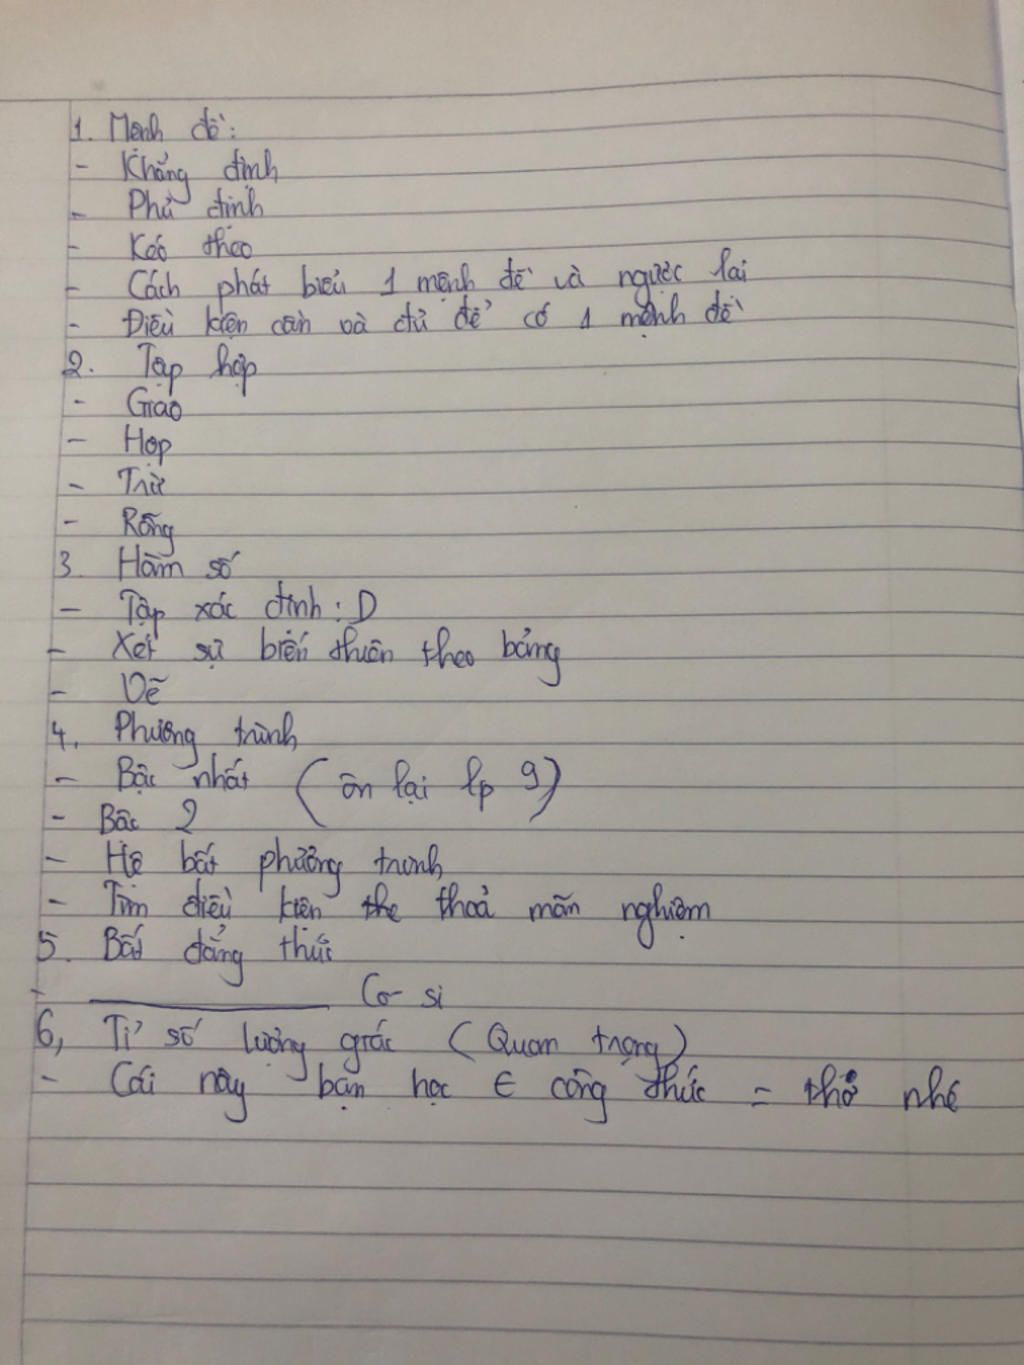 1. Mệnh đề:
- Khẳng định
- Phủ định
- Kéo theo
- Cách phát biểu 1 mệnh đề và ngược lại
- Điều kiện cần và đủ để có 1 mệnh đề
2. Tập hợp
- Giao
- Hợp
- Trừ
- Rỗng
3. Hàm số
- Tập xác định : D
- Xét sự biến thiên theo bảng
- Vẽ
4. Phương trình
- Bậc nhất (ôn lại lp 9)
- Bậc 2
- Hệ bất phương trình
- Tìm điều kiện the thoả mãn nghiệm
5. Bất đẳng thức
- ________ Cô-si
6, Tỉ số lượng giác (Quan trọng)
- Cái này bạn học ∈ công thức = thơ nhé